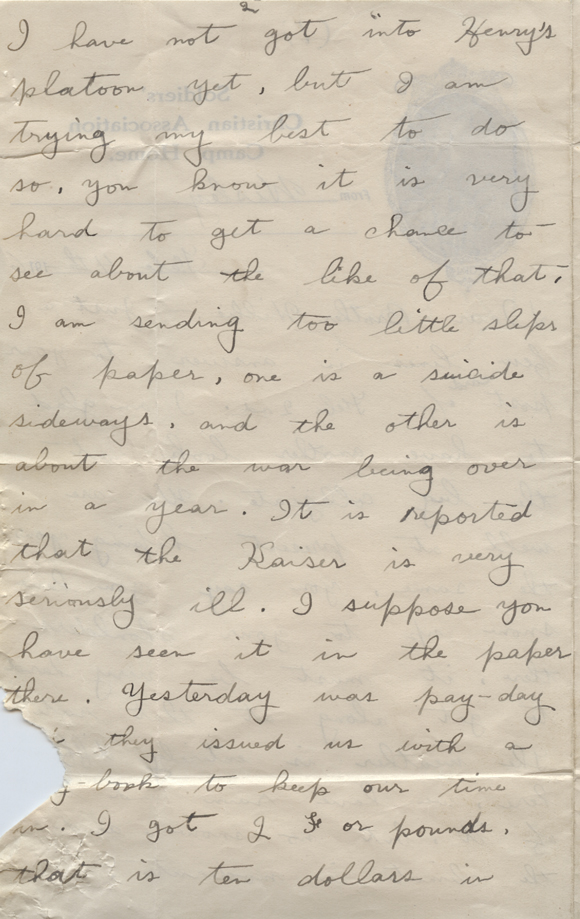 2
I have not got into Henry's
platoon yet, but I am
trying my best to do
so, you know it is very
hard to get a chance to-
see about the like of that,
I am sending too little slips
of paper, one is a suicide
sideways, and the other is
about the war being over
in a year. It is reported
that the Kaiser is very
seriously ill. I suppose you
have seen it in the paper
there. Yesterday was pay-day
they issued us with a
-book to keep our time
in. I got 2 or pounds,
that is ten dollars in
Soldiers
Christian Association
Camp Home.
From